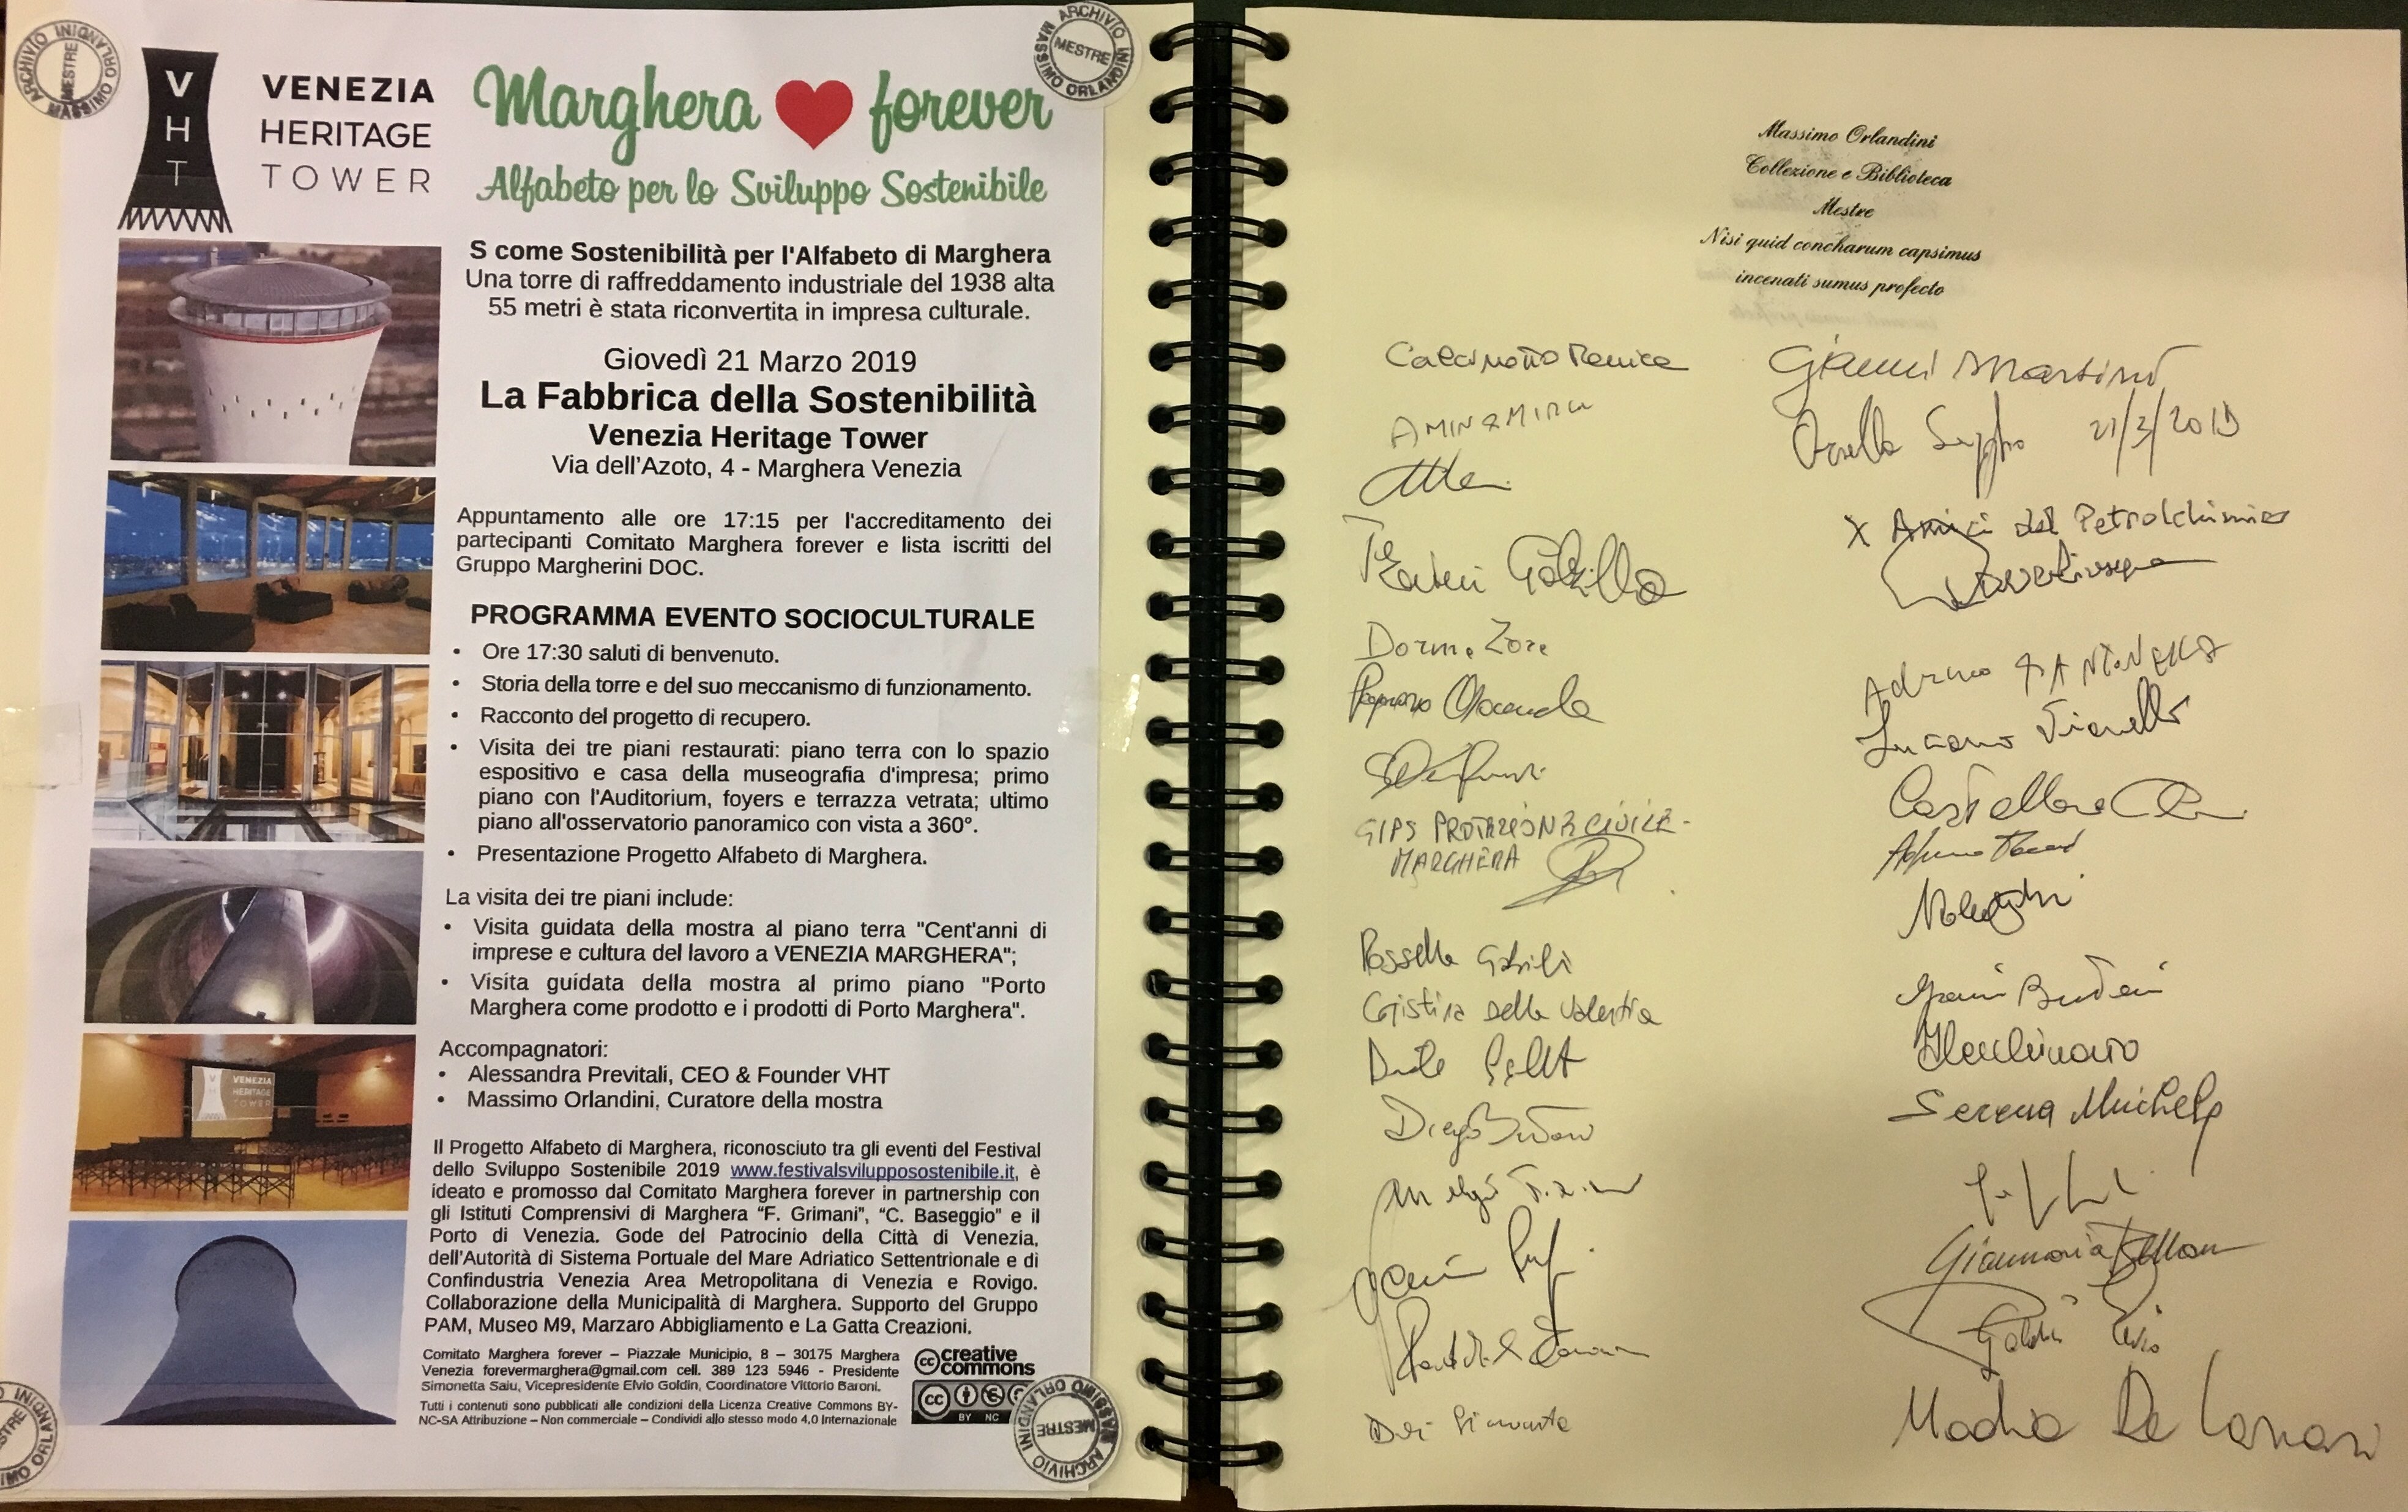 ARCHIVIO MASSIMO ORLANDINI
MESTRE
V
H
T
VENEZIA
HERITAGE
TOWER
Marghera forever
Alfabeto per lo Sviluppo Sostenibile
ARCHIVIO MASSIMO ORLANDINI
MESTRE
S come Sostenibilità per l'Alfabeto di Marghera
Una torre di raffreddamento industriale del 1938 alta
55 metri è stata riconvertita in impresa culturale.
Giovedì 21 Marzo 2019
La Fabbrica della Sostenibilità
Venezia Heritage Tower
Via dell'Azoto, 4 - Marghera Venezia
Appuntamento alle ore 17:15 per l'accreditamento dei
partecipanti Comitato Marghera forever e lista iscritti del
Gruppo Margherini DOC.
PROGRAMMA EVENTO SOCIOCULTURALE
• Ore 17:30 saluti di benvenuto.
• Storia della torre e del suo meccanismo di funzionamento.
• Racconto del progetto di recupero.
• Visita dei tre piani restaurati: piano terra con lo spazio
espositivo e casa della museografia d'impresa; primo
piano con l'Auditorium, foyers e terrazza vetrata; ultimo
piano all'osservatorio panoramico con vista a 360°.
• Presentazione Progetto Alfabeto di Marghera.
La visita dei tre piani include:
• Visita guidata della mostra al piano terra "Cent'anni di
imprese e cultura del lavoro a VENEZIA MARGHERA";
• Visita guidata della mostra al primo piano "Porto
Marghera come prodotto e i prodotti di Porto Marghera".
Accompagnatori:
• Alessandra Previtali, CEO & Founder VHT
• Massimo Orlandini, Curatore della mostra
VENEZIA
HERITAGE
TOWER
Il Progetto Alfabeto di Marghera, riconosciuto tra gli eventi del Festival
dello Sviluppo Sostenibile 2019 www.festivalsvilupposostenibile.it, è
ideato e promosso dal Comitato Marghera forever in partnership con
gli Istituti Comprensivi di Marghera “F. Grimani”, “C. Baseggio” e il
Porto di Venezia. Gode del Patrocinio della Città di Venezia,
dell'Autorità di Sistema Portuale del Mare Adriatico Settentrionale e di
Confindustria Venezia Area Metropolitana di Venezia e Rovigo.
Collaborazione della Municipalità di Marghera. Supporto del Gruppo
PAM, Museo M9, Marzaro Abbigliamento e La Gatta Creazioni.
Comitato Marghera forever – Piazzale Municipio, 8 – 30175 Marghera
Venezia forevermarghera@gmail.com cell. 389 123 5946 - Presidente
Simonetta Saiu, Vicepresidente Elvio Goldin, Coordinatore Vittorio Baroni.
Tutti i contenuti sono pubblicati alle condizioni della Licenza Creative Commons BY-
NC-SA Attribuzione – Non commerciale – Condividi allo stesso modo 4.0 Internazionale
cc creative
commons
cc
BY NC
ARCHIVIO MASSIMO ORLANDINI
MESTRE
Massimo Orlandini
Collezione e Biblioteca
Mestre
Nisi quid concharum capsimus
incenati sumus profecto
Gianni Martini
Ornella 21/3/2019
X Amici del Petrolchimico
GIPS PROTEZIONE CIVILE -
MARGHERA
Rossella
Cristina della Valentina
Diego
Adriano
Luciano Vianello
Serena Michele
Gianmaria
De